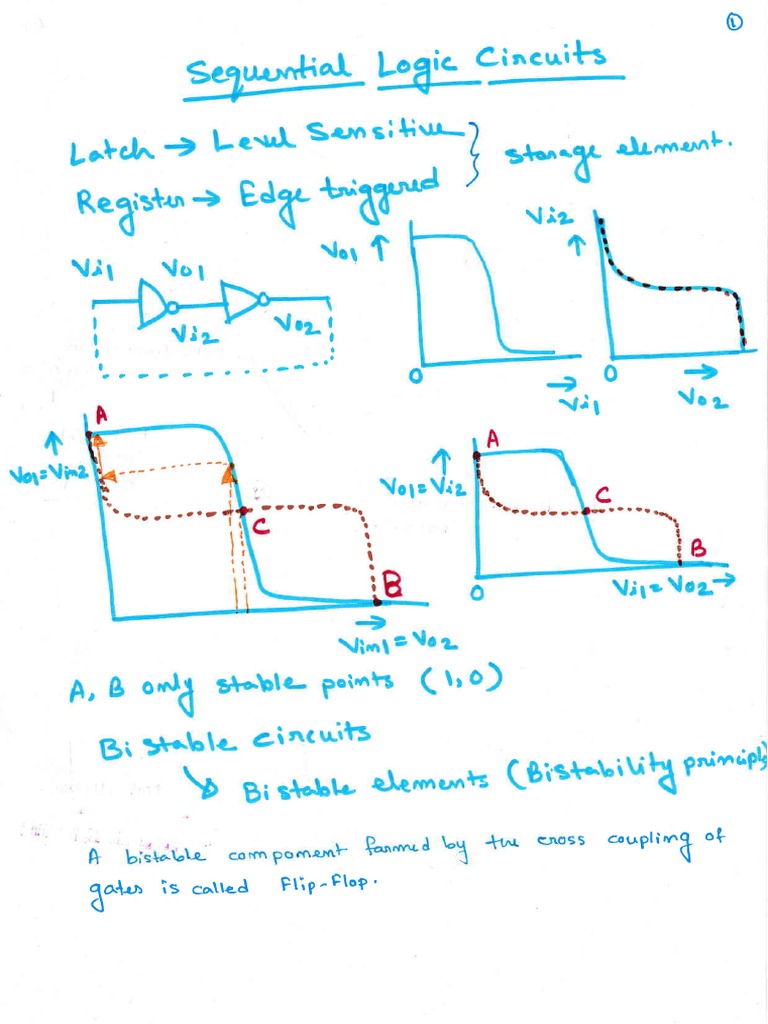 1
Sequential Logic Circuits
Latch → Level Sensitive
Register → Edge triggered
} storage element.
Vi1 Vo1
Vi2 Vo2
Vo1 ↑
0
→ Vi1
Vi2 ↑
0
→ Vo2
A
↑ Vo1 = Vin2
C
B
→ Vin1 = Vo2
A
↑ Vo1 = Vi2
C
B
0
Vi1 = Vo2 →
A, B only stable points (1,0)
Bi stable circuits
↘ Bi stable elements (Bistability principle
A bistable component formed by the cross coupling of
gates is called Flip-Flop.